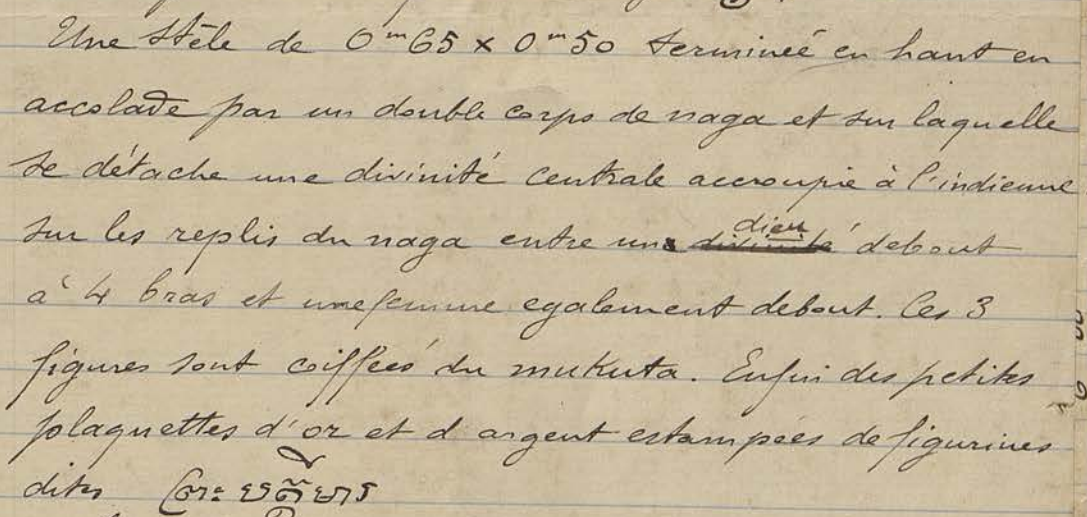 Une Stèle de 0<sup>m</sup>65 x 0<sup>m</sup>50 terminée en haut en
accolade par un double corps de naga et sur laquelle
se détache une divinité centrale accroupie à l'indienne
sur les replis du naga entre un dieu debout
à 4 bras et une femme egalement debout. Ces 3
figures sont coiffées du mukuta. Enfin des petites
plaquettes d'or et d argent estampées de figurines
dites ព្រះ